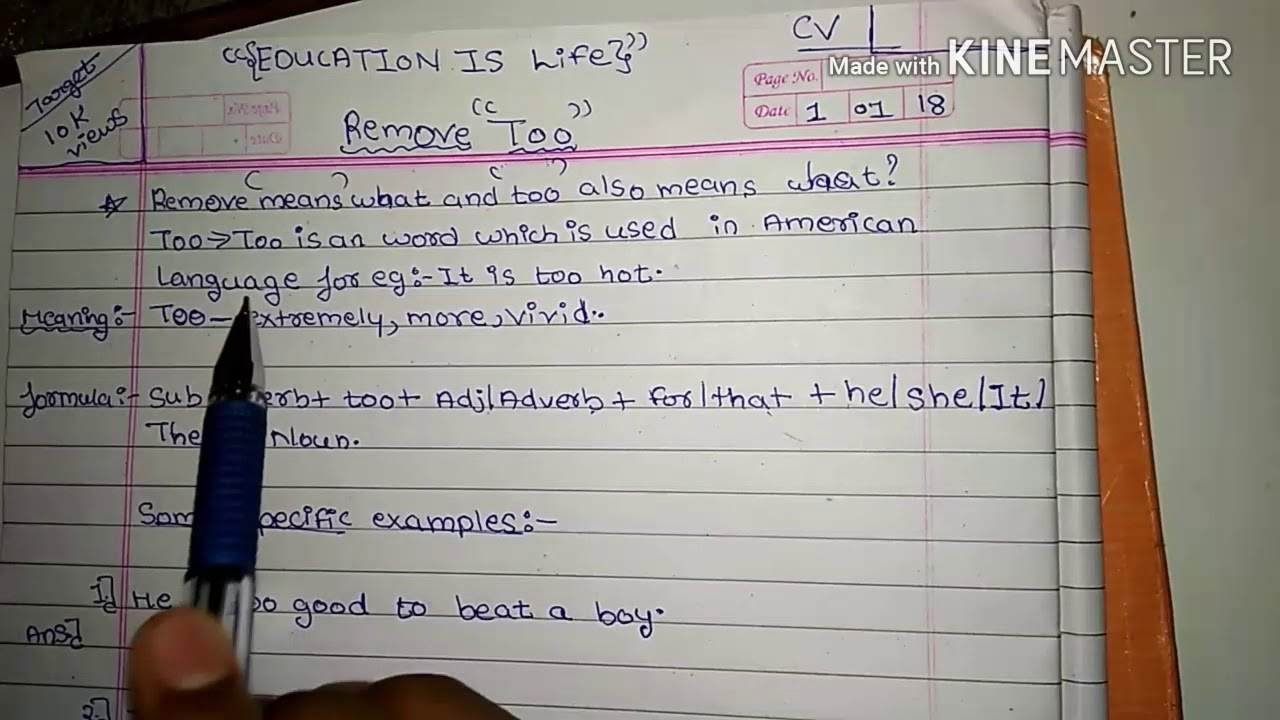 CV
Made with KINEMASTER
Target
10K
views
"{EDUCATION IS Life}"
Page No.
Date 1 01 18
Remove "Too"
Remove means what and too also means what?
Too⇒Too is an word which is used in American
Language for eg:- It is too hot.
Meaning:- Too- extremely, more, vivid.
formula:- Sub + too + Adj/Adverb + for/that + he/she/It/
The Noun.
examples:-
1] He good to beat a boy.
Ans]
2]